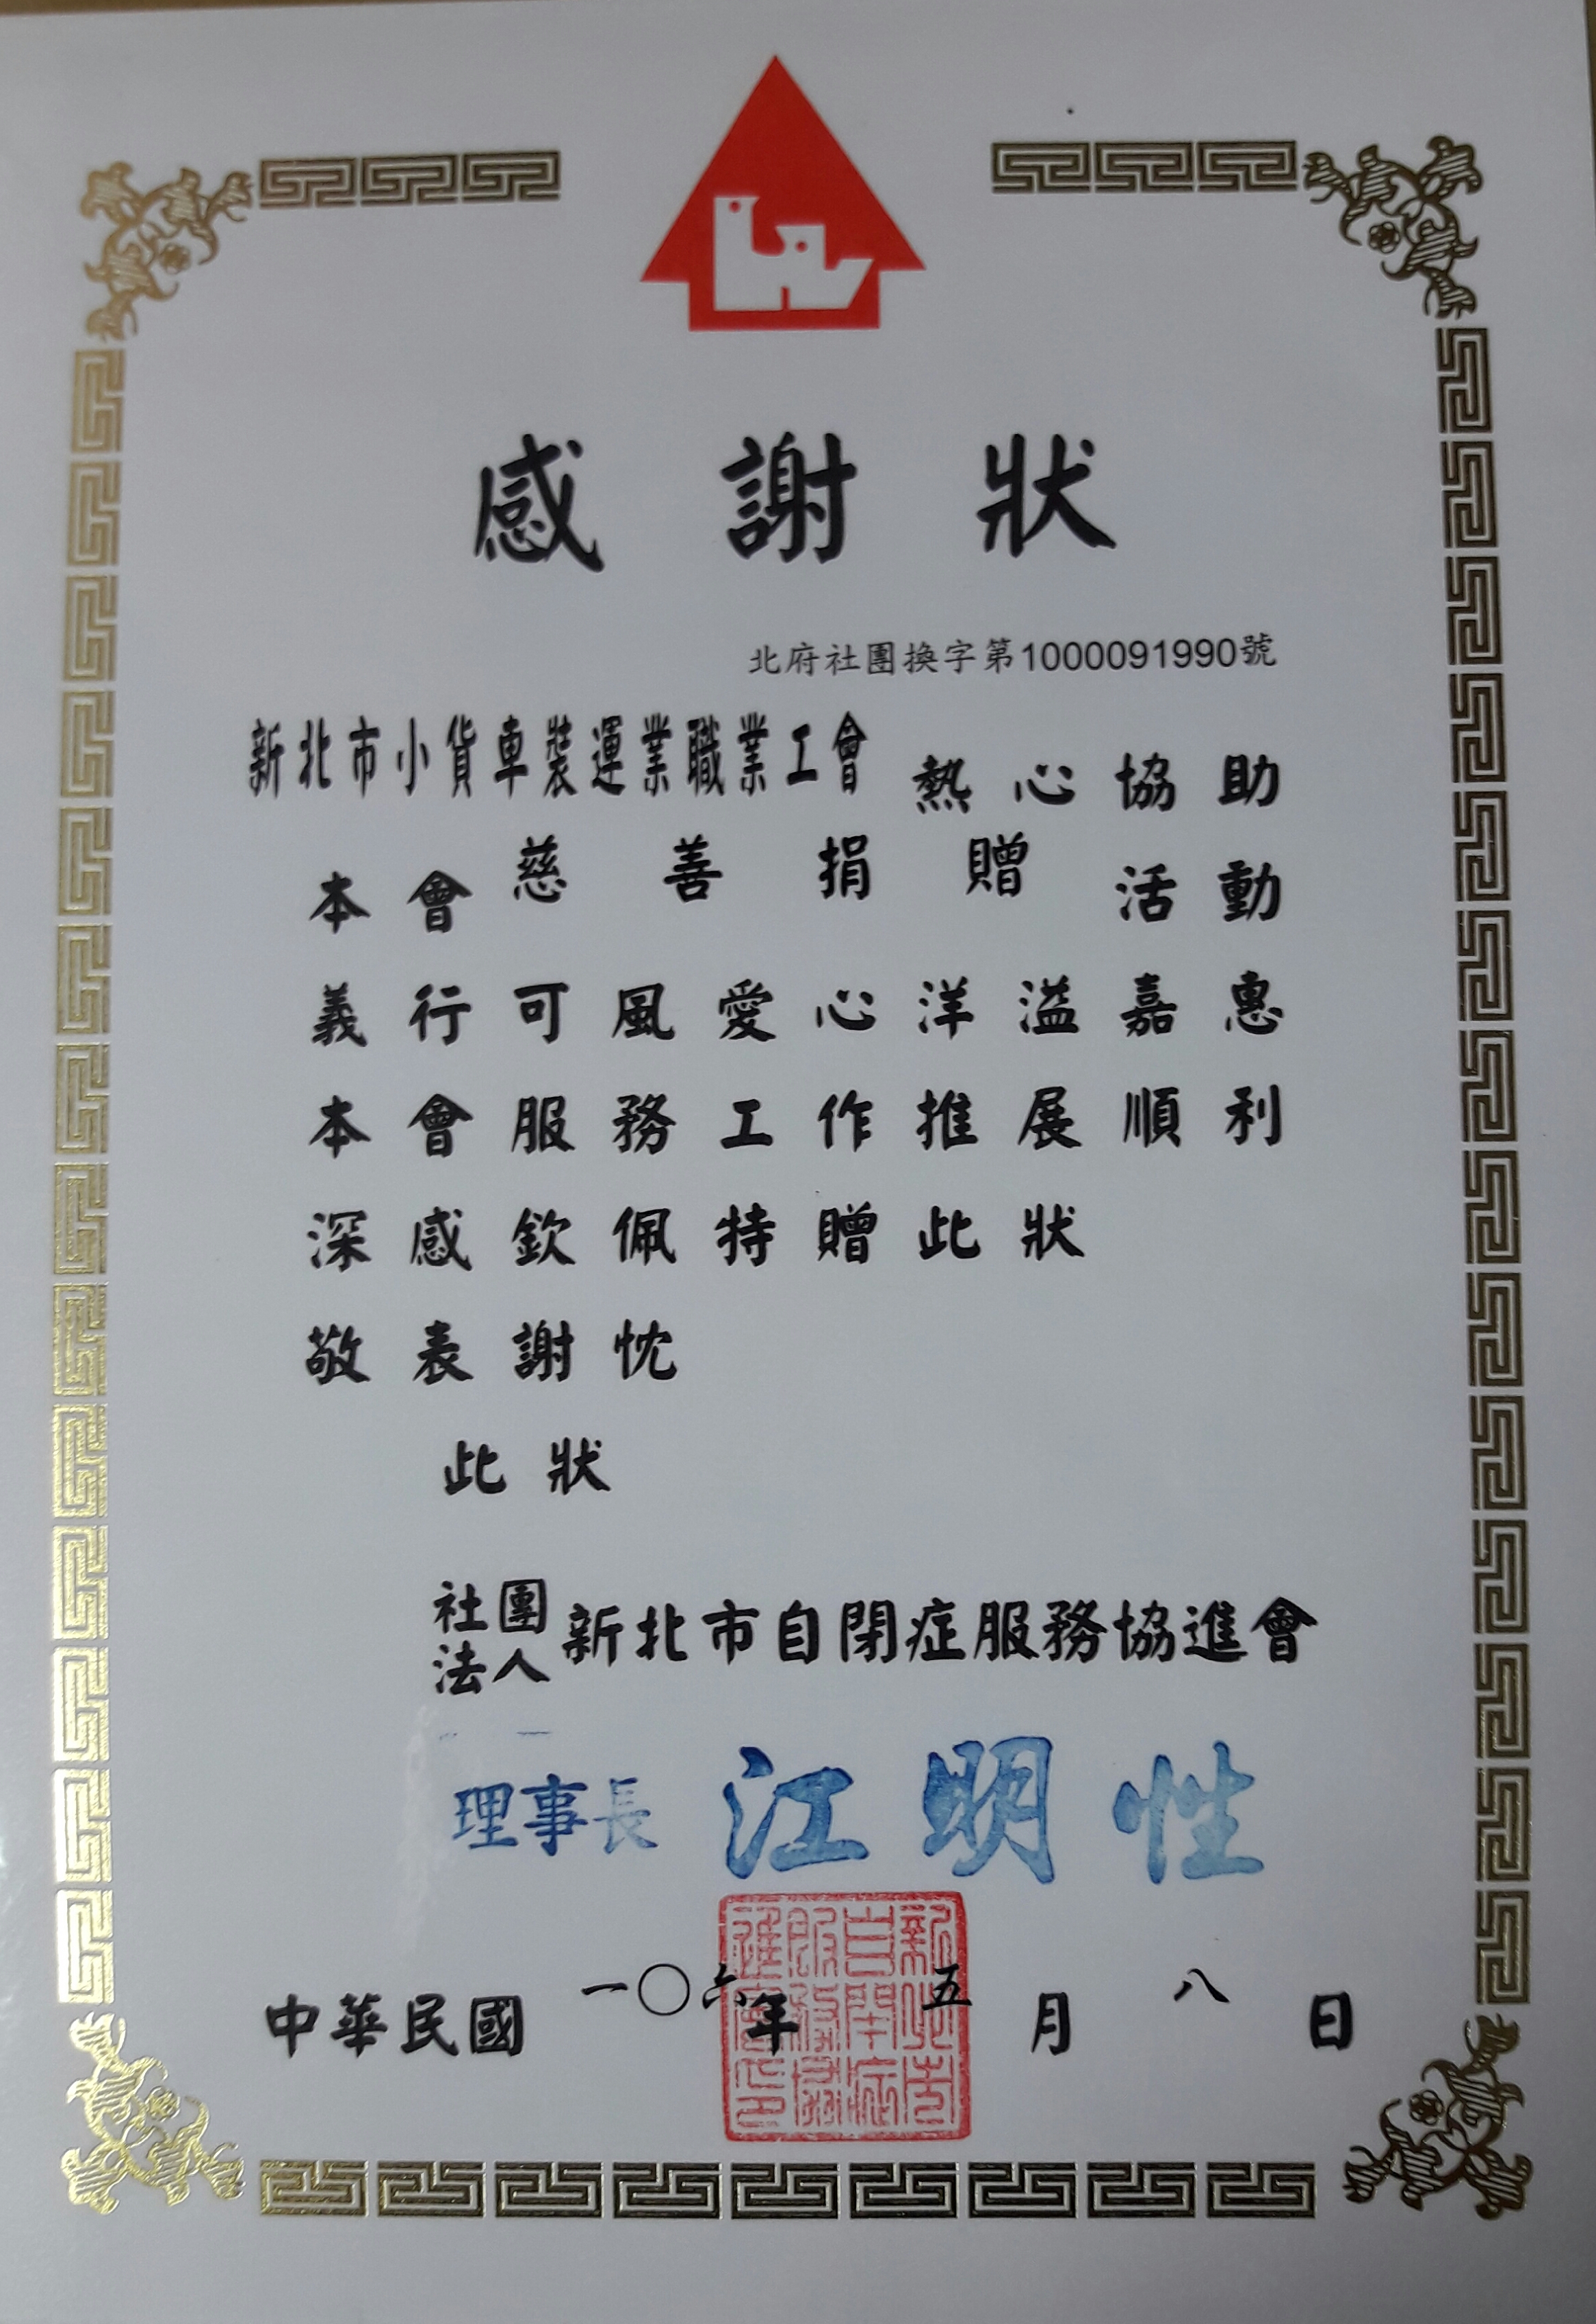 感謝狀
北府社團換字第1000091990號
新北市小貨車裝運業職業工會 熱心協助
本會慈善捐贈活動
義行可風愛心洋溢嘉惠
本會服務工作推展順利
深感欽佩特贈此狀
敬表謝忱
此狀
社團法人新北市自閉症服務協進會
理事長 江明性
中華民國一〇六年五月八日
新北市自閉症服務協進會印